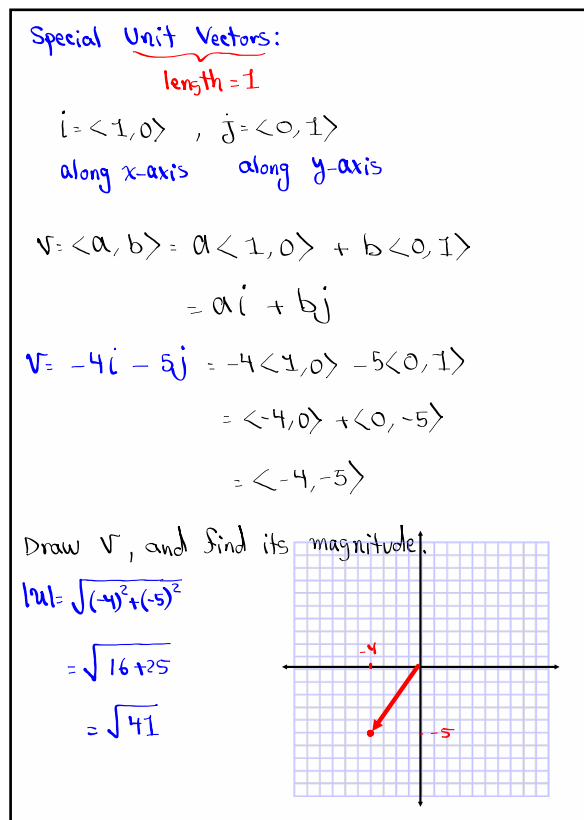 Special Unit Vectors:
length = 1
i = <1,0> , j = <0,1>
along x-axis along y-axis
V = <a,b> = a<1,0> + b<0,1>
= ai + bj
V = -4i - 5j = -4<1,0> -5<0,1>
= <-4,0> + <0,-5>
= <-4,-5>
Draw V, and find its magnitude.
|u| = √((-4)²+(-5)²)
= √(16+25)
= √41
-4
-5